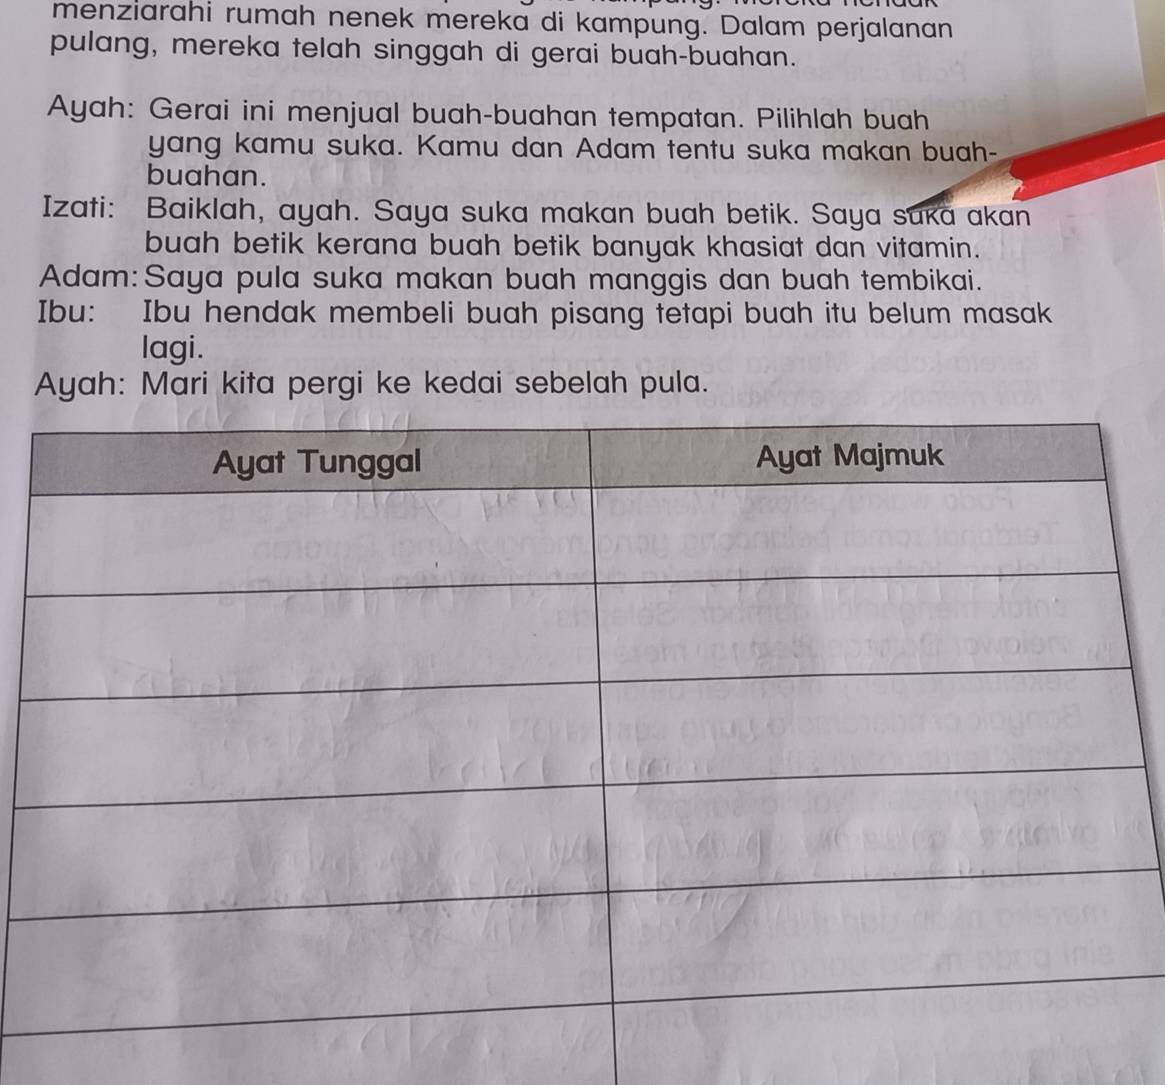 menziarahi rumah nenek mereka di kampung. Dalam perjalanan
pulang, mereka telah singgah di gerai buah-buahan.
Ayah: Gerai ini menjual buah-buahan tempatan. Pilihlah buah
yang kamu suka. Kamu dan Adam tentu suka makan buah-
buahan.
Izati: Baiklah, ayah. Saya suka makan buah betik. Saya suka akan
buah betik kerana buah betik banyak khasiat dan vitamin.
Adam: Saya pula suka makan buah manggis dan buah tembikai.
Ibu: Ibu hendak membeli buah pisang tetapi buah itu belum masak
lagi.
Ayah: Mari kita pergi ke kedai sebelah pula.
Ayat Tunggal Ayat Majmuk